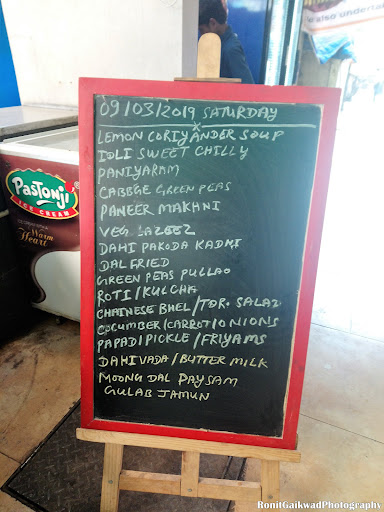 also undertake
09/03/2019 SATURDAY
LEMON CORIYANDER SOUP
IDLI SWEET CHILLY
PANIYARAM
CABBGE GREEN PEAS
PANEER MAKHNI
VEG. LAZEEZ
DAHI PAKODA KADHI
DAL FRIED
GREEN PEAS PULLAO
ROTI/KULCHA
CHAINESE BHEL/TOR. SALAD
CUCUMBER/CARROT/ONIONS
PAPAD/PICKLE/FRIYAMS
DAHIVADA/BUTTER MILK
MOONG DAL PAYSAM
GULAB JAMUN
PASTONJI
ICE CREAM
Warm
Heart
RonitGaikwadPhotography